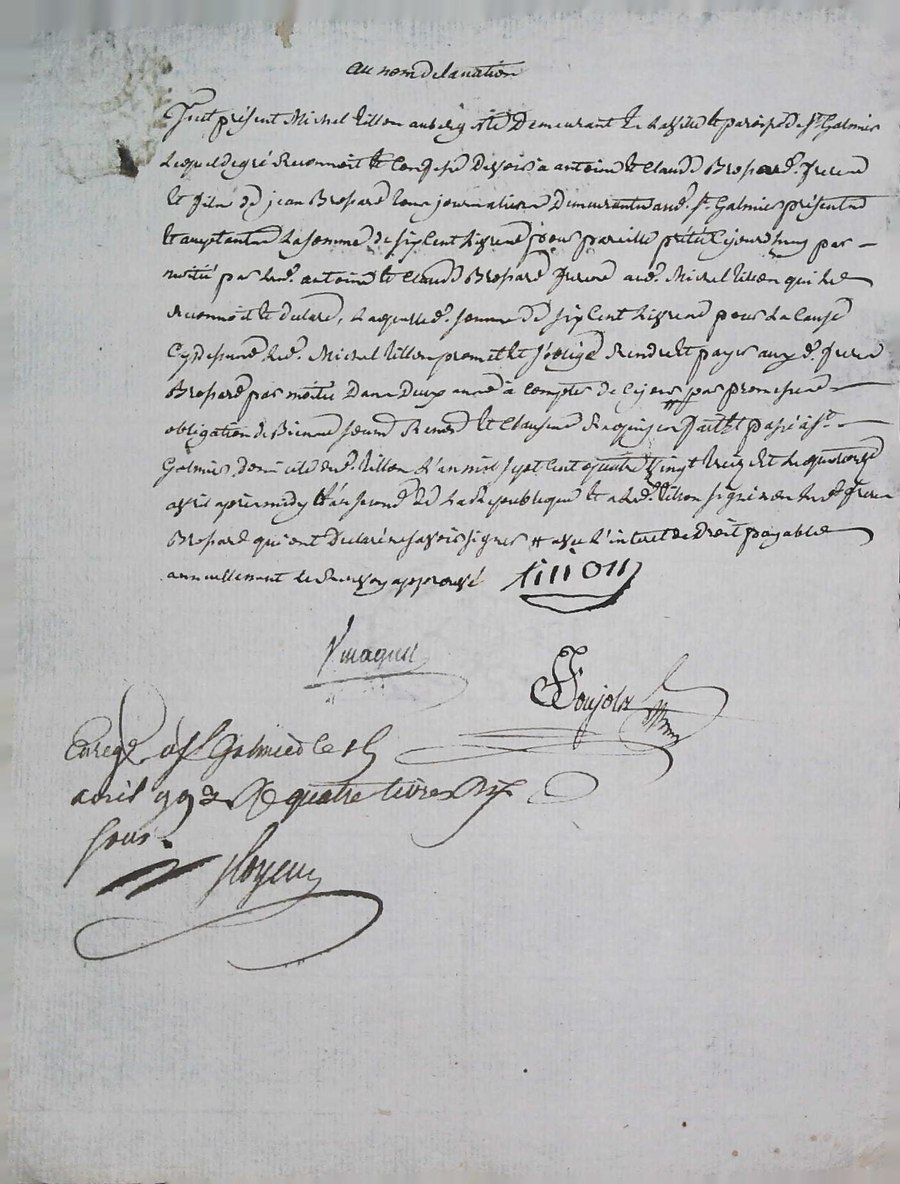 au nom de la nation
Fut présent Michel Tillon aubergiste Demeurant En La ville et paroisse de St Galmier
Lequel de gré Reconnoit et Confesse Devoir à antoine et Claude Brossard freres
et fils de jean Brossard journaliers Demeurants aud. St Galmier présents
et acceptants La somme de six Cent Livres pour pareille pretée Cejourdhuy par
moitié par Lesd. antoine et Claude Brossard freres aud. Michel Tillon qui Le
Reconnoit et declare, Laquelle d. somme de six Cent Livres pour La Cause
Cy dessus Led. Michel Tillon promet et s'oblige Rendre et payer auxd. freres
Brossard par moitié Dans Deux années à Compter de Ce jour # par promesse
obligation de Biens soum. Renon. et Clauses fait et passé à St
Galmier domicile dud. Tillon L'an mil sept Cent quatre vingt treize et Le quatorze
avril après midy et L'an second de La Republique et a Led. Tillon signé non Lesd. freres
Brossard qui ont Declaré ne savoir signer # avec L'interet de Droit payable
annuellement le Renvoy approuvé tillon
Enregé à St Galmier le 15
avril 1793 Re quatre livres dix
sous.